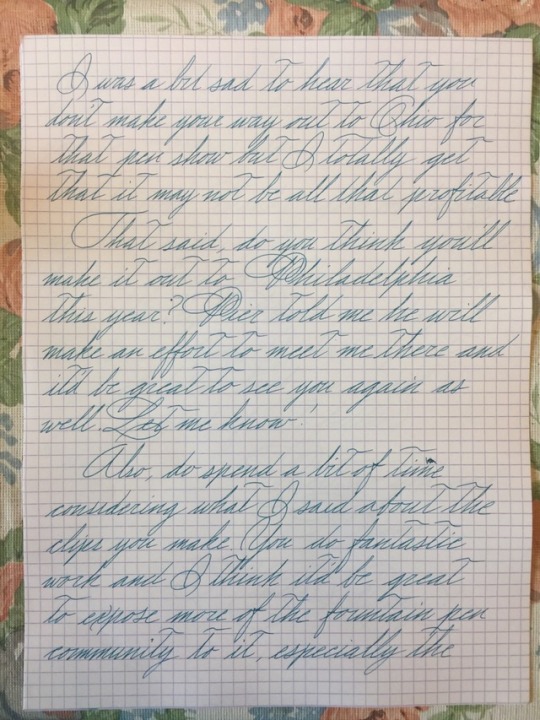 I was a bit sad to hear that you
don't make your way out to Ohio for
that pen show but I totally get
that it may not be all that profitable
That said, do you think you'll
make it out to Philadelphia
this year? Pier told me he will
make an effort to meet me there and
it'd be great to see you again as
well. Let me know!
Also, do spend a bit of time
considering what I said about the
clips you make. You do fantastic
work and I think it'd be great
to expose more of the fountain pen
community to it, especially the